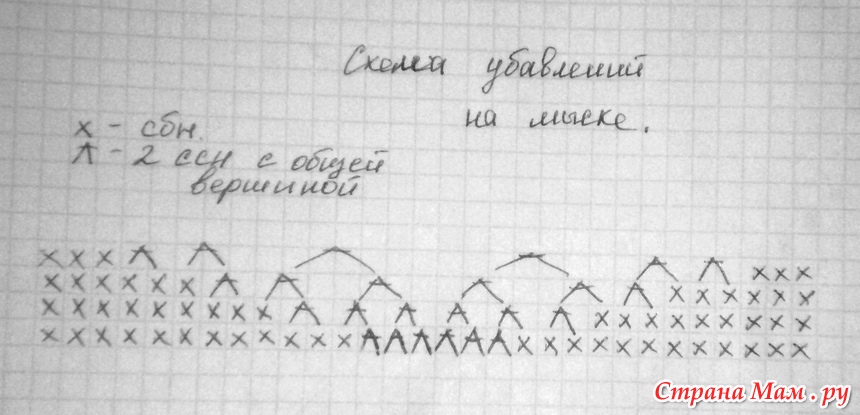 Схема убавлений
на мыске.
х - сбн.
Λ - 2 ссн с общей
вершиной
Страна Мам.ру